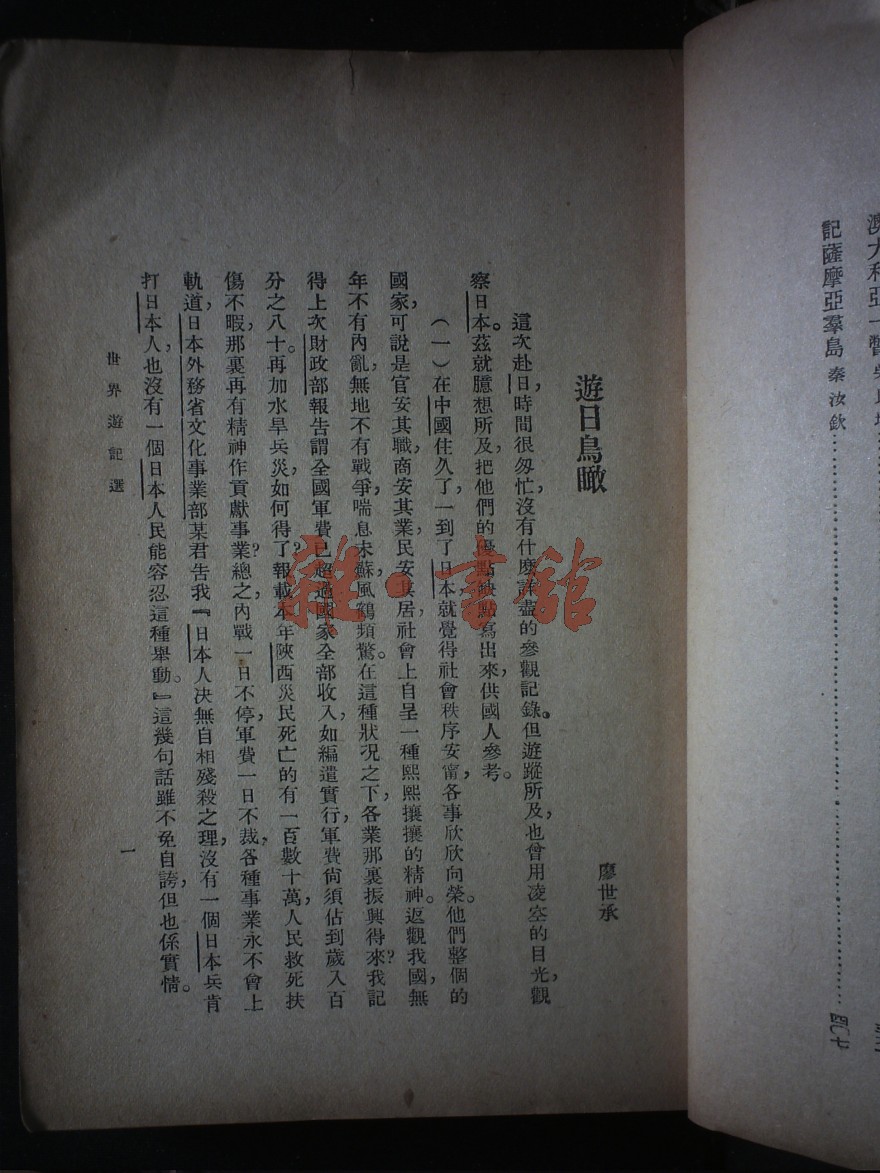 澳大利亞一瞥
記薩摩亞羣島 秦汝欽……………………四七
遊日鳥瞰
廖世承
這次赴日，時間很匆忙，沒有什麼詳盡的參觀記錄。但遊蹤所及，也曾用凌空的目光，觀
察日本。茲就臆想所及，把他們的優點缺點寫出來，供國人參考。
（一）在中國住久了，一到了日本，就覺得社會秩序安甯，各事欣欣向榮。他們整個的
國家，可說是官安其職，商安其業，民安其居，社會上自呈一種熙熙攘攘的精神。返觀我國，無
年不有內亂，無地不有戰爭，喘息未蘇，風鶴頻驚。在這種狀况之下，各業那裏振興得來？我記
得上次財政部報告謂全國軍費已超過國家全部收入，如編遣實行，軍費尙須佔到歲入百
分之八十。再加水旱兵災，如何得了？報載本年陝西災民死亡的有一百數十萬，人民救死扶
傷不暇，那裏再有精神作貢獻事業？總之，內戰一日不停，軍費一日不裁，各種事業永不會上
軌道，日本外務省文化事業部某君告我『日本人決無自相殘殺之理，沒有一個日本兵肯
打日本人，也沒有一個日本人民能容忍這種舉動。』這幾句話雖不免自誇，但也係實情。
世界遊記選
一
雜·書館